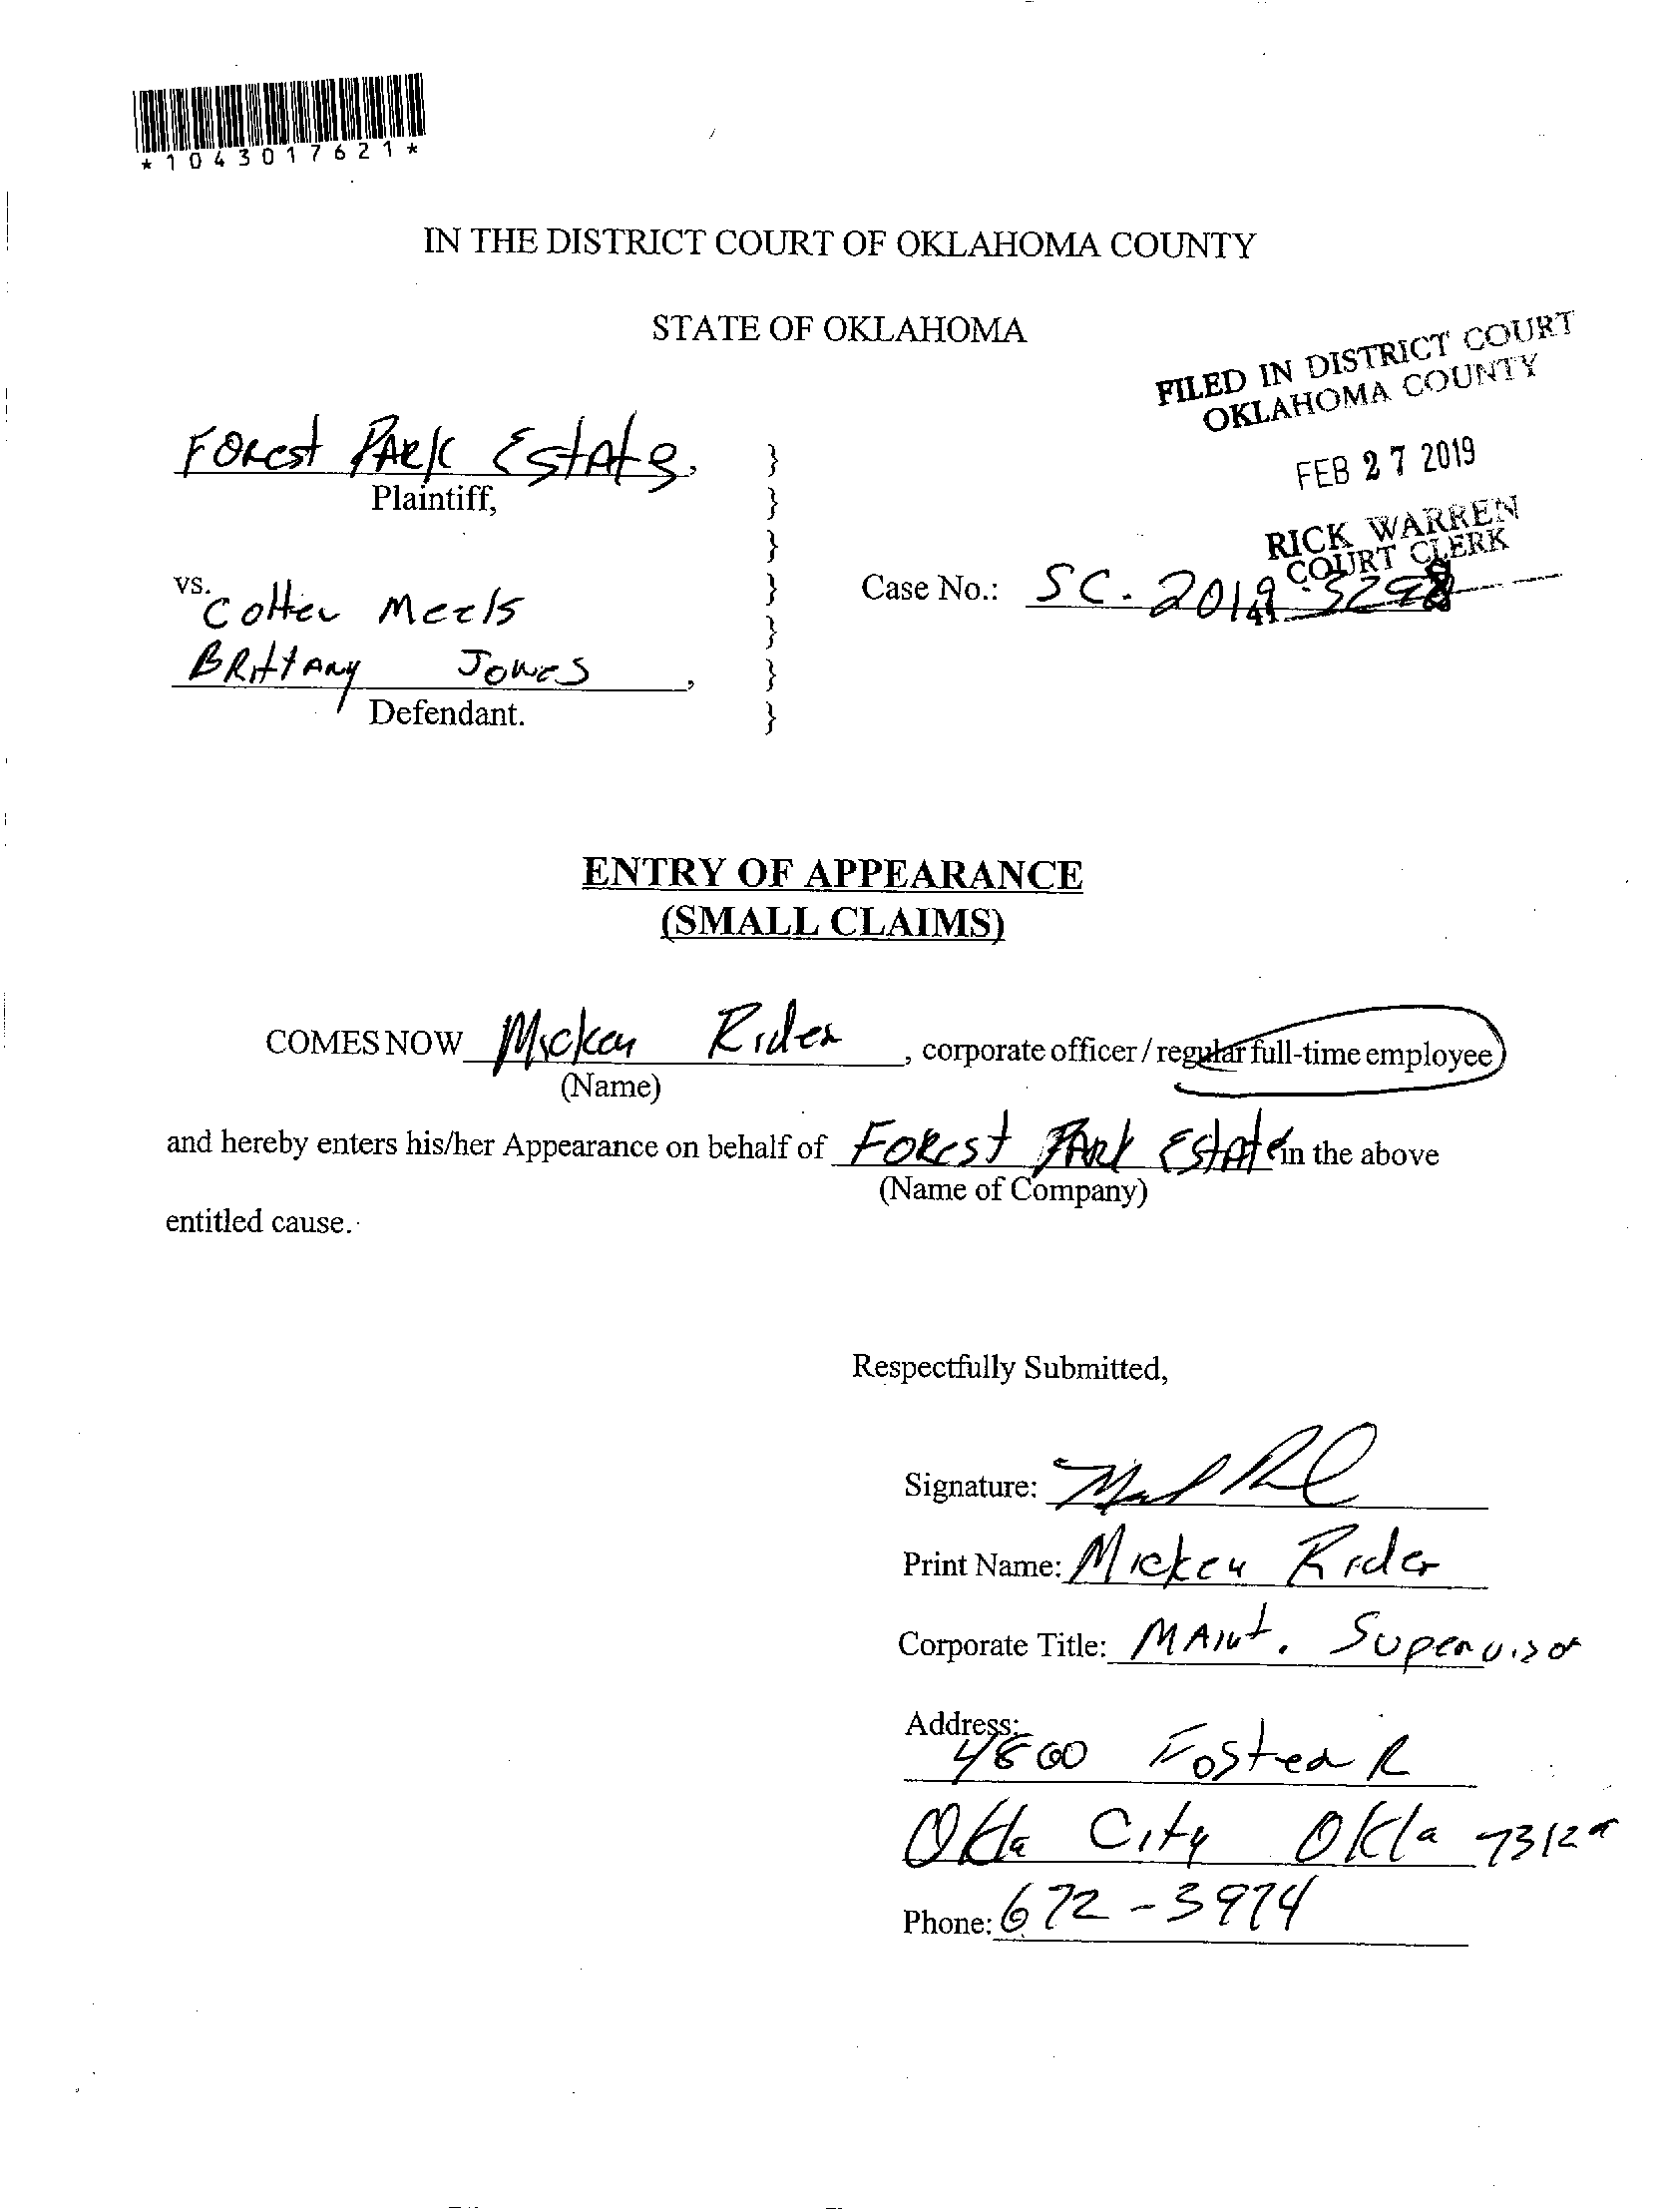 *1043017621*
IN THE DISTRICT COURT OF OKLAHOMA COUNTY
STATE OF OKLAHOMA
FILED IN DISTRICT COURT
OKLAHOMA COUNTY
FEB 27 2019
RICK WARREN
COURT CLERK
Forest PARK Estate,
Plaintiff,
vs.
Case No.: SC-2019
BRittANY Jones,
Defendant.
ENTRY OF APPEARANCE
(SMALL CLAIMS)
COMES NOW Mickey Rider, corporate officer / regular full-time employee
(Name)
and hereby enters his/her Appearance on behalf of FOREST PARK EStAtE in the above
(Name of Company)
entitled cause.
Respectfully Submitted,
Signature:
Print Name: Mickey Rider
Corporate Title: MAINt. Supervisor
Address:
4800 Foster R
Okla City Okla
Phone: 672-3974